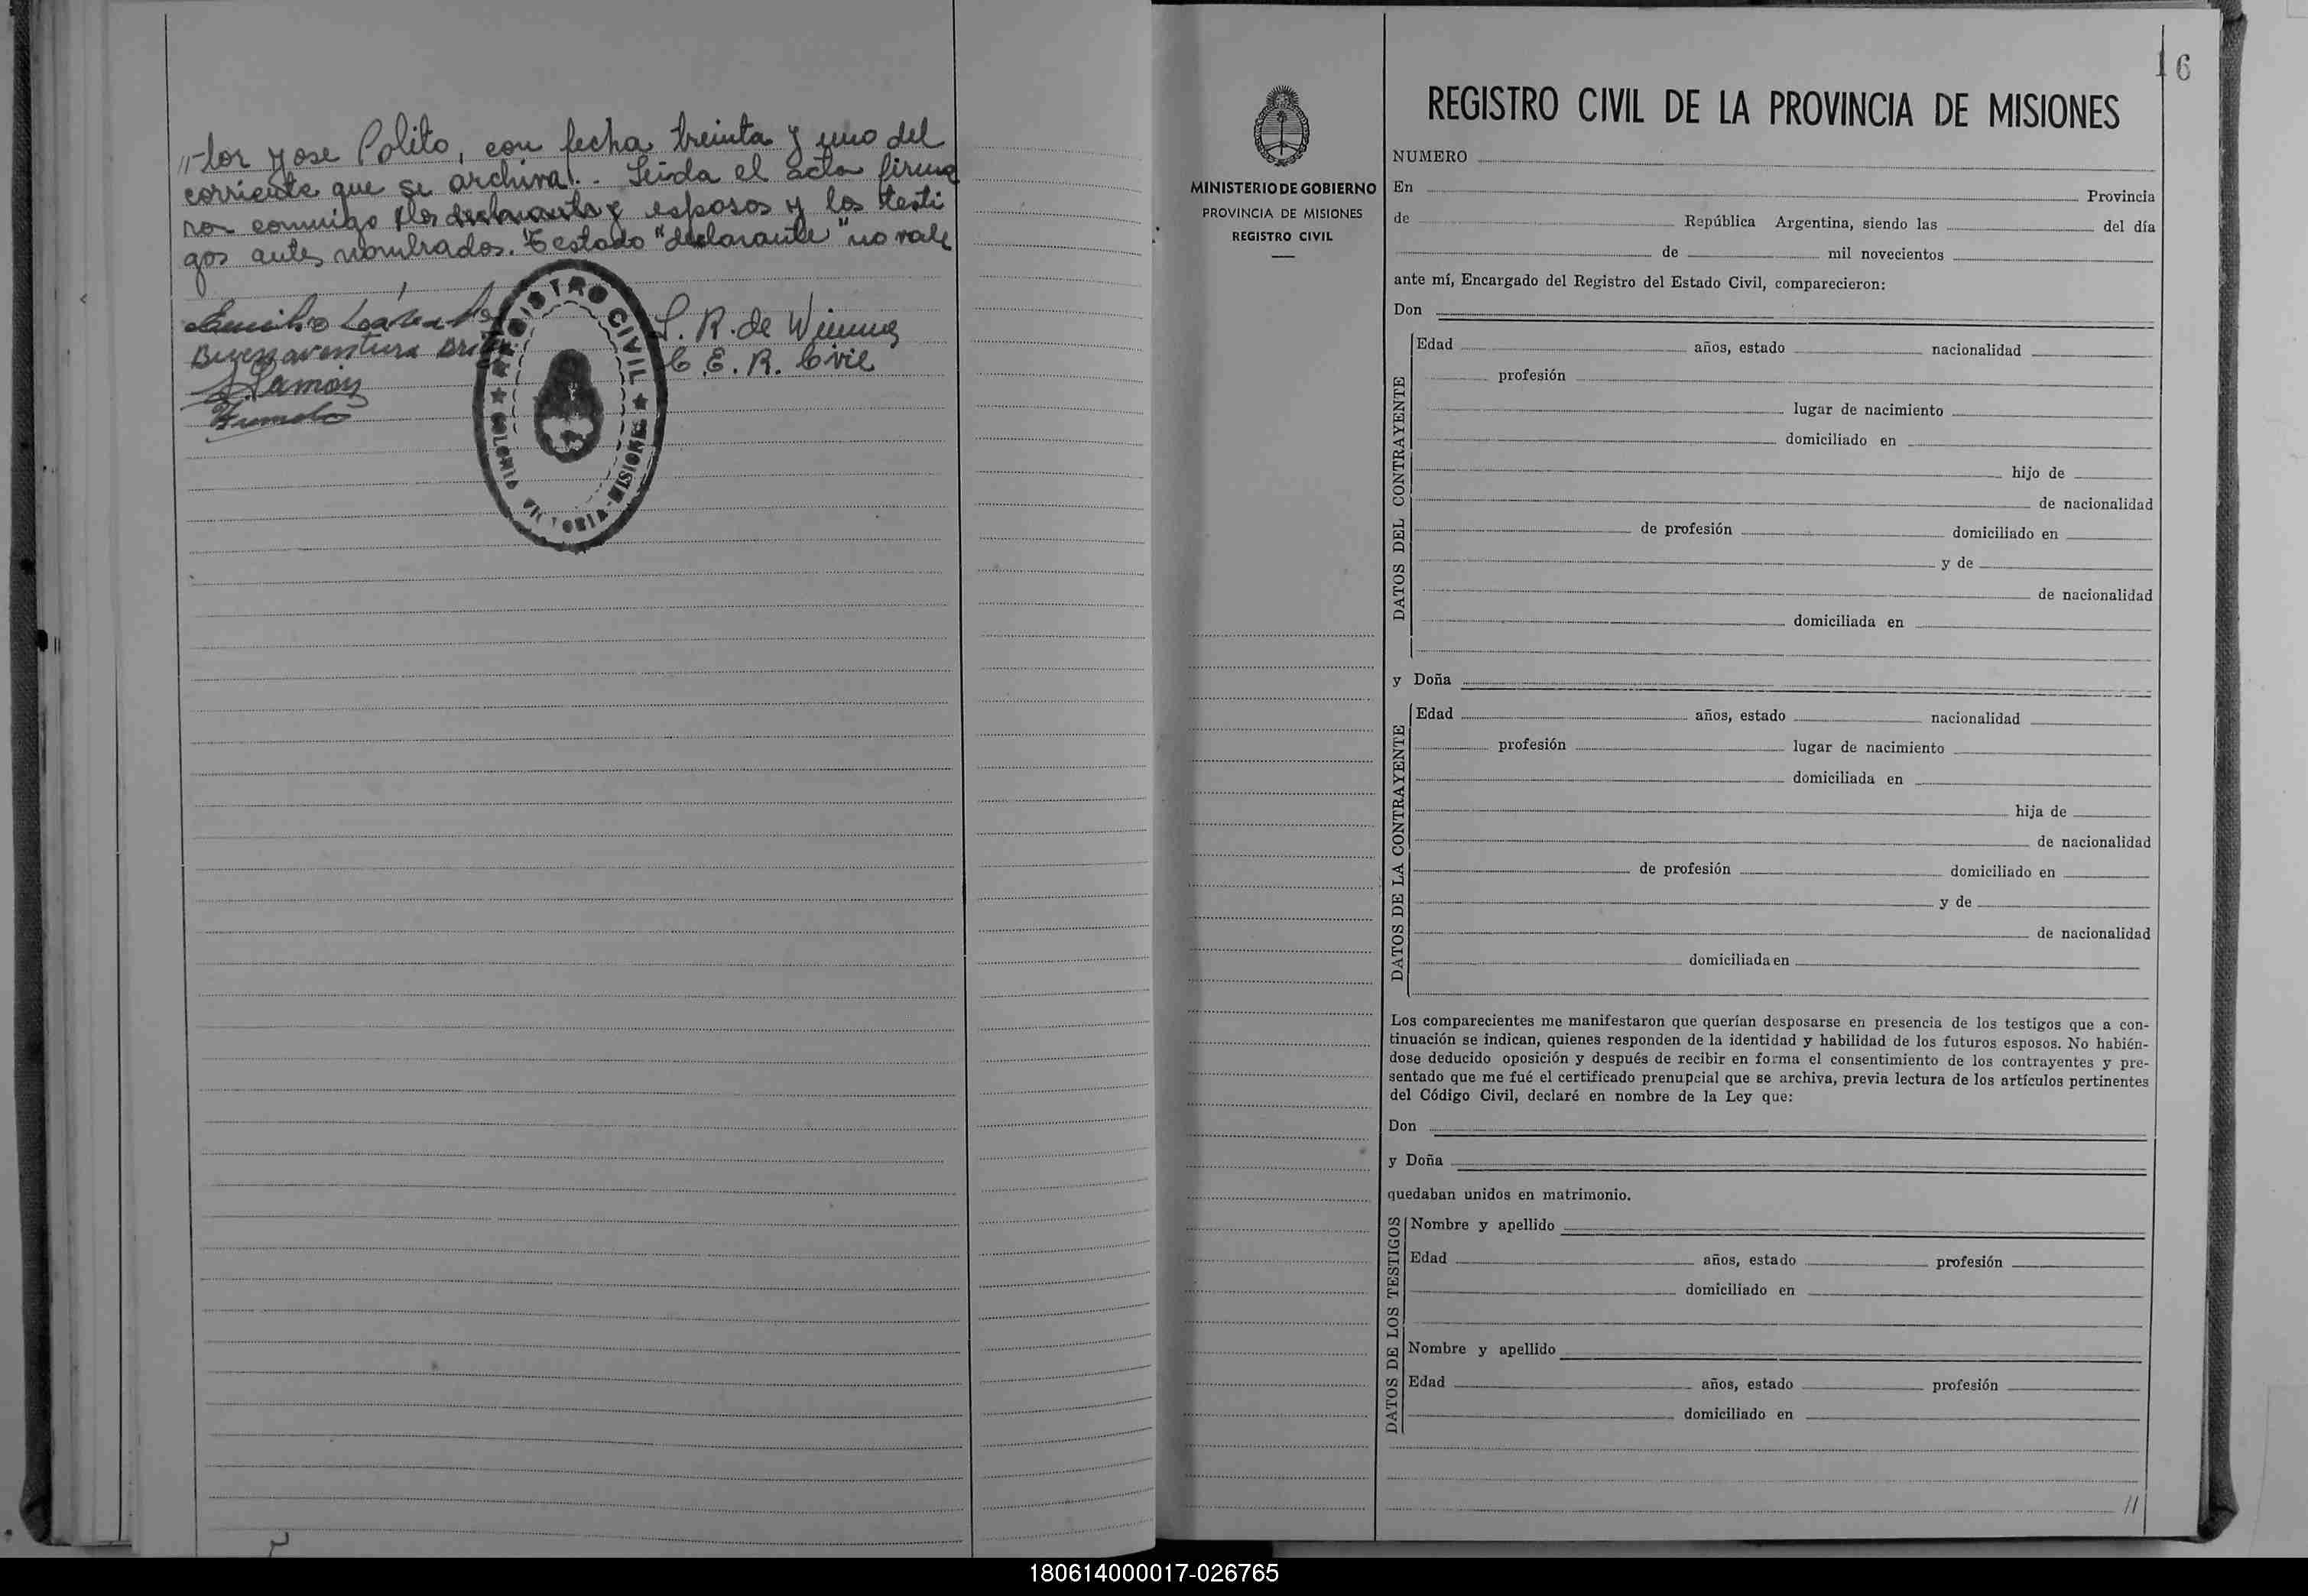 "-tor Jose Polito, con fecha treinta y uno del
corriente que se archiva.. Leida el acta firma
ron conmigo los declarante y esposos y los testi
gos antes nombrados. Testado "declarante" no vale
Emilio
Buenaventura
S. R. de
Ramón
E. R. Civil
REGISTRO CIVIL
COLONIA VICTORIA - MISIONES
16
MINISTERIO DE GOBIERNO
PROVINCIA DE MISIONES
REGISTRO CIVIL
REGISTRO CIVIL DE LA PROVINCIA DE MISIONES
NUMERO
En Provincia
de República Argentina, siendo las del día
de mil novecientos
ante mí, Encargado del Registro del Estado Civil, comparecieron:
Don
DATOS DEL CONTRAYENTE
Edad años, estado nacionalidad
profesión
lugar de nacimiento
domiciliado en
hijo de
de nacionalidad
de profesión domiciliado en
y de
de nacionalidad
domiciliada en
y Doña
DATOS DE LA CONTRAYENTE
Edad años, estado nacionalidad
profesión lugar de nacimiento
domiciliada en
hija de
de nacionalidad
de profesión domiciliado en
y de
de nacionalidad
domiciliada en
Los comparecientes me manifestaron que querían desposarse en presencia de los testigos que a con-
tinuación se indican, quienes responden de la identidad y habilidad de los futuros esposos. No habién-
dose deducido oposición y después de recibir en forma el consentimiento de los contrayentes y pre-
sentado que me fué el certificado prenupcial que se archiva, previa lectura de los artículos pertinentes
del Código Civil, declaré en nombre de la Ley que:
Don
y Doña
quedaban unidos en matrimonio.
DATOS DE LOS TESTIGOS
Nombre y apellido
Edad años, estado profesión
domiciliado en
Nombre y apellido
Edad años, estado profesión
domiciliado en
//
180614000017-026765